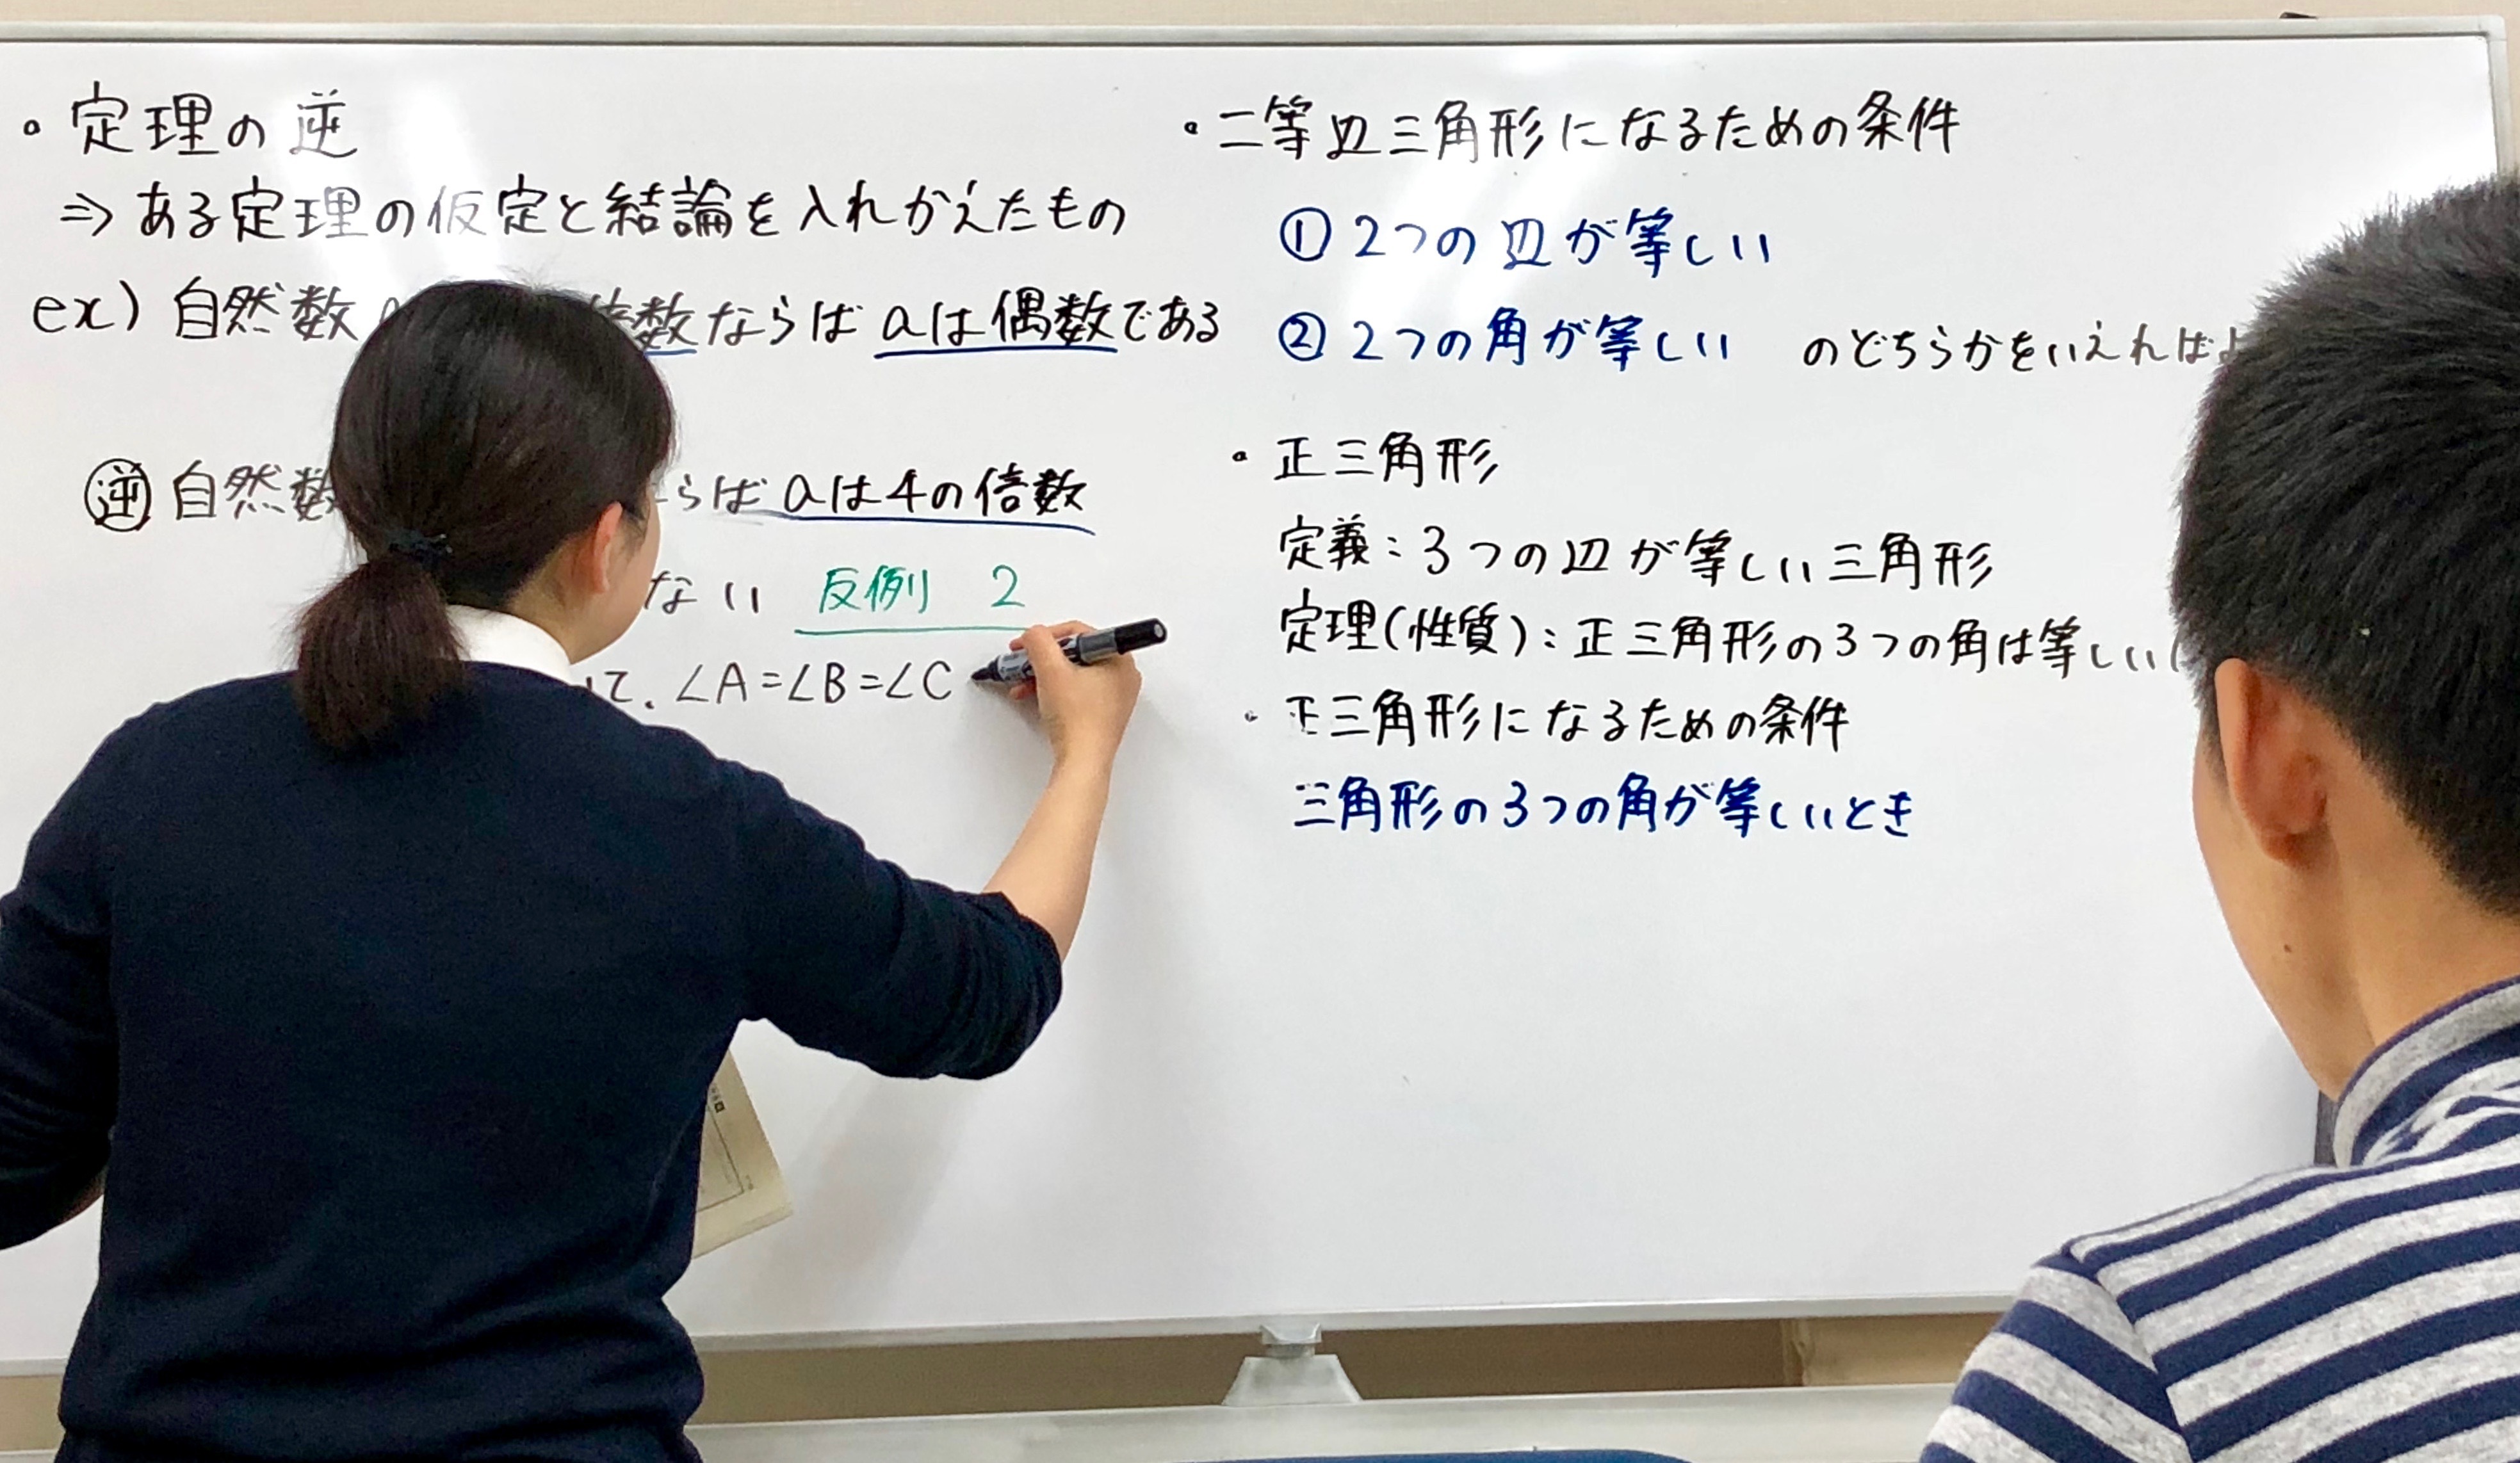 。定理の逆
⇒ある定理の仮定と結論を入れかえたもの
ex)自然数 倍数ならばaは偶数である
逆 自然数 らばaは4の倍数
ない 反例 2
て、∠A=∠B=∠C
・二等辺三角形になるための条件
①2つの辺が等しい
②2つの角が等しい のどちらかをいえればよ
・正三角形
定義:3つの辺が等しい三角形
定理(性質):正三角形の3つの角は等しい
・正三角形になるための条件
三角形の3つの角が等しいとき